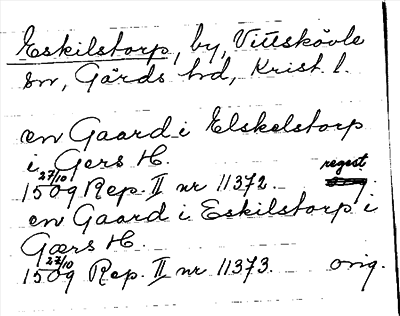 Eskilstorp, by, Vittskövle
sn, Gärds hd, Krist. l.
en Gaard i Elskelstorp
i Gers H.
27/10 regest
1509 Rep. II nr 11372.
en Gaard i Eskilstorp i
Gærs H.
27/10
1509 Rep. II nr 11373. orig.